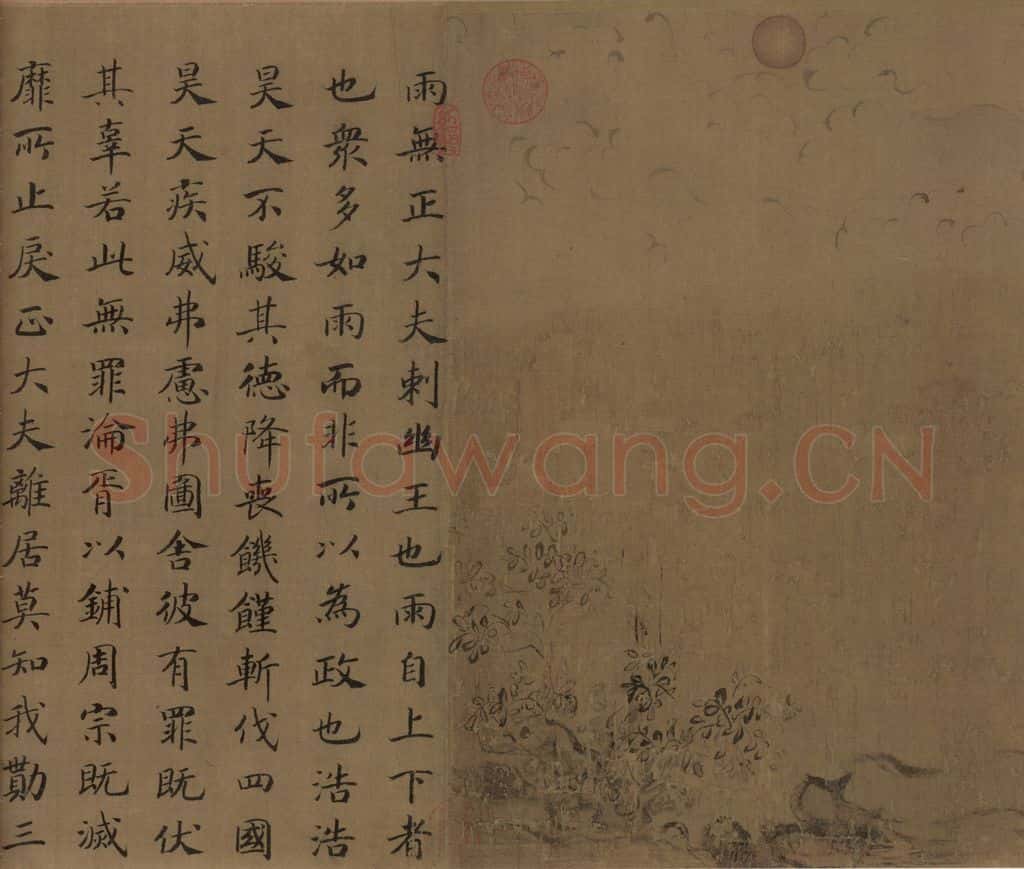 雨無正大夫刺幽王也雨自上下者
也衆多如雨而非所以為政也浩浩
昊天不駿其德降喪饑饉斬伐四國
昊天疾威弗慮弗圖舍彼有罪既伏
其辜若此無罪淪胥以鋪周宗既滅
靡所止戾正大夫離居莫知我勩三
Shufawang.CN